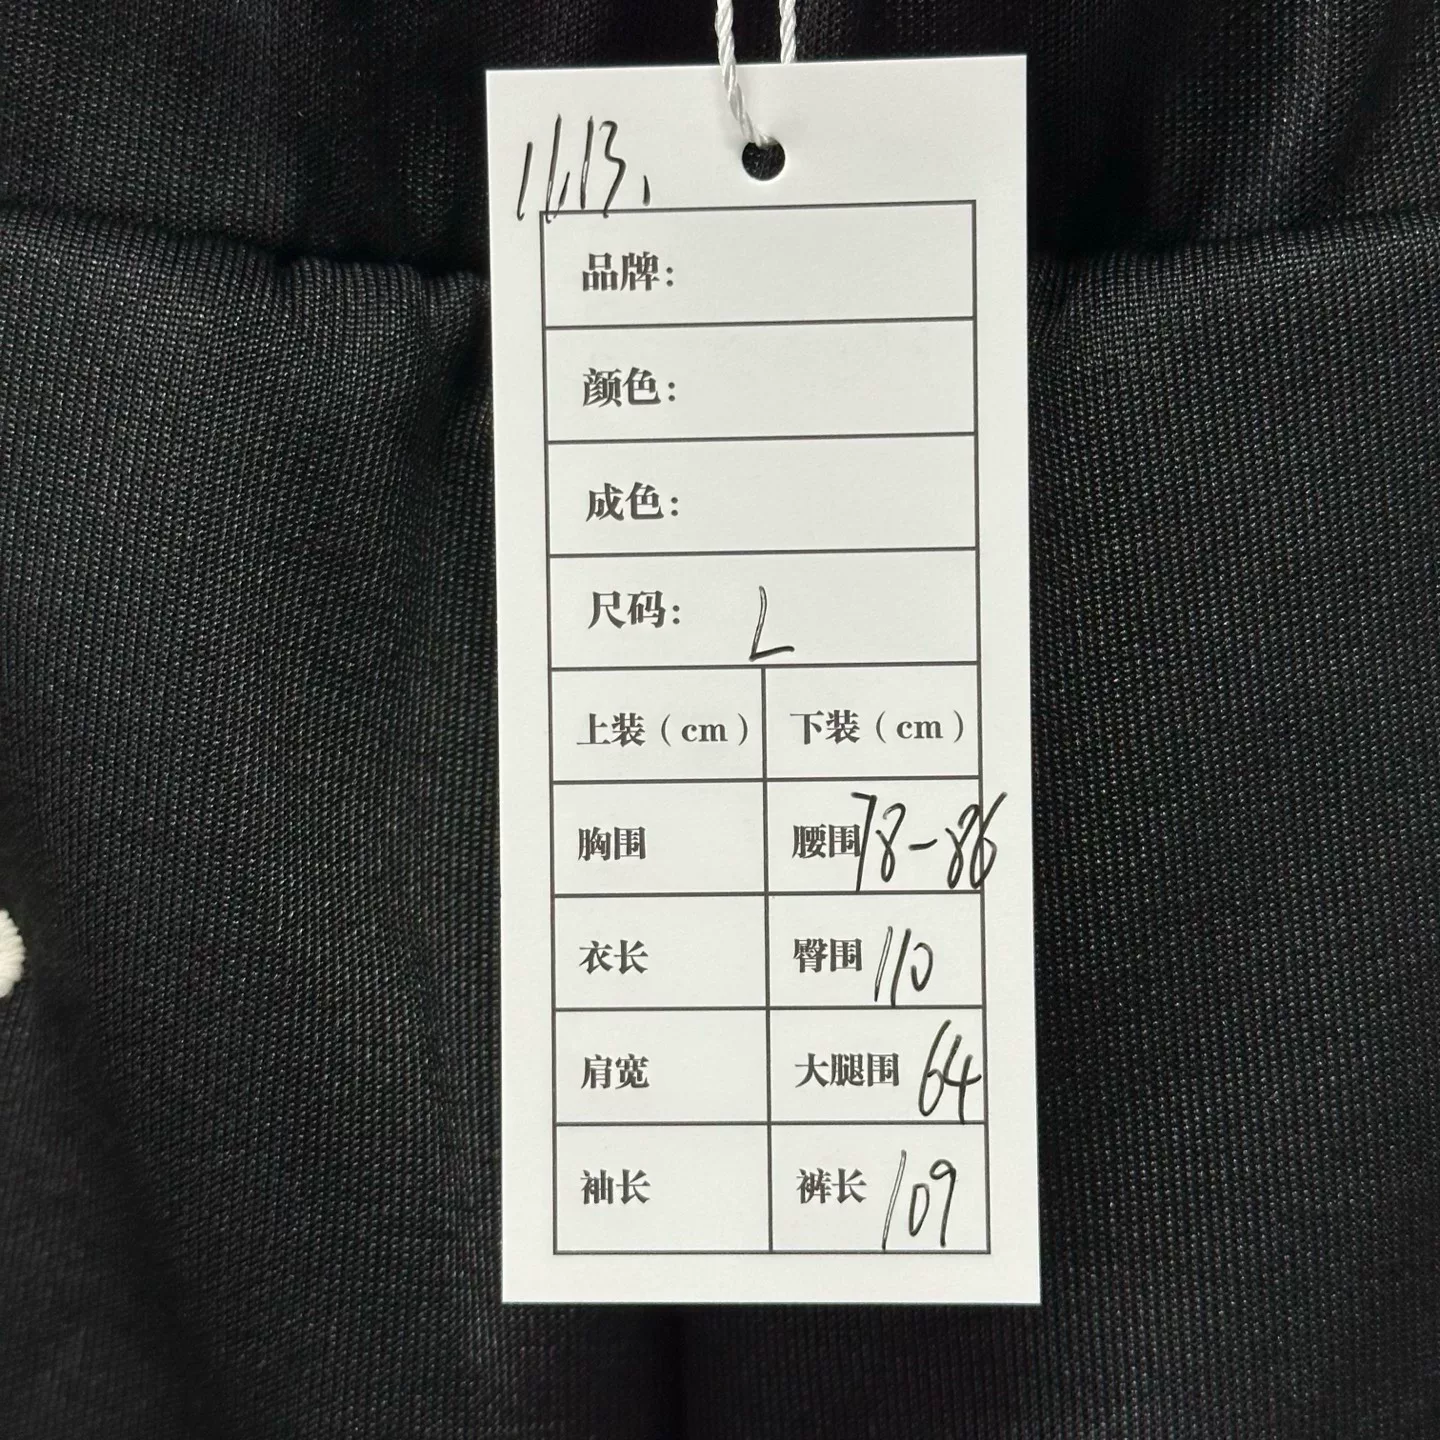 11.13.
品牌：
颜色：
成色：
尺码： L
上装（cm） 下装（cm）
胸围 腰围 78-86
衣长 臀围 110
肩宽 大腿围 64
袖长 裤长 109